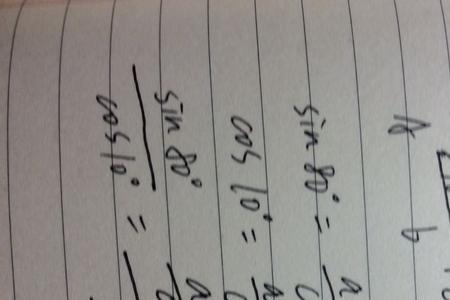 A b
sin 80° = a
c
cos 10° = a
c
sin 80° a
cos 10° =